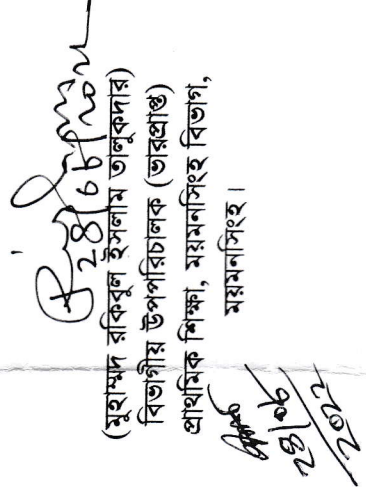 ২৪/০৮/২০২২
(মুহাম্মদ রকিবুল ইসলাম তালুকদার)
বিভাগীয় উপপরিচালক (ভারপ্রাপ্ত)
প্রাথমিক শিক্ষা, ময়মনসিংহ বিভাগ,
ময়মনসিংহ।